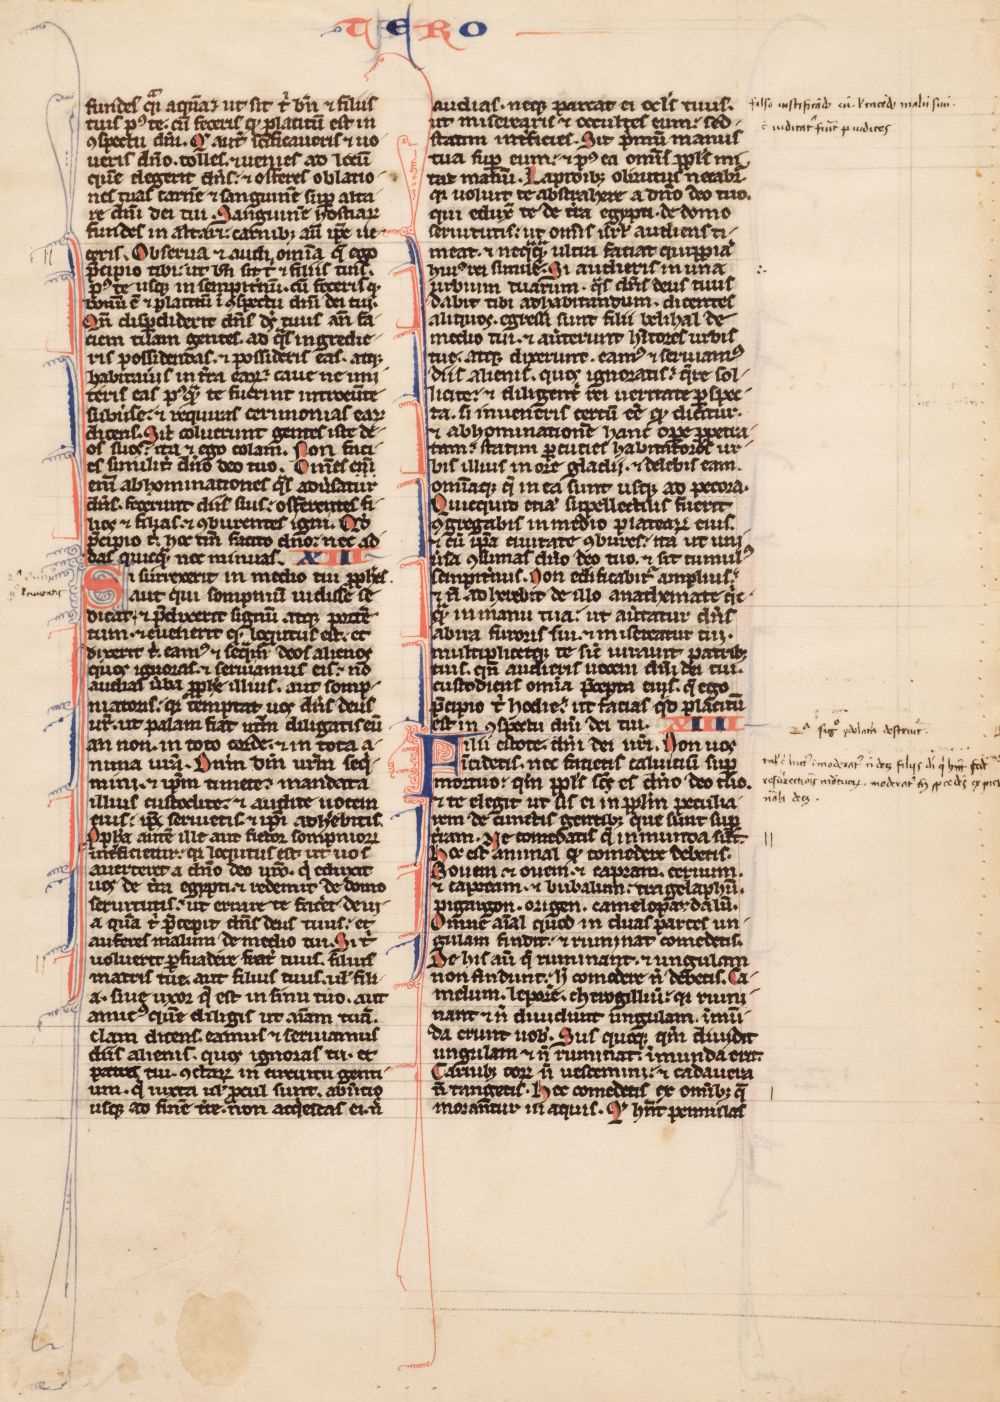 TERO
fundes q̃i aquam ut sit t̃ bñ ⁊ filiis
tuis p̾ te. cũ feceris qd̾ placitũ est in
ꝯspectu dñi. Qd̾ aut̃ sc̃ificaueris ⁊ uo
ueris dño. tolles. ⁊ uenies ad locũ
quẽ elegerit dñs. ⁊ offeres oblatio
nes tuas carnẽ ⁊ sanguinẽ sup̃ alta
re dñi dei tui. Sanguinẽ hostiaꝝ
fundes in altari. carnibꝫ aũ ip̃e ue
ceris. Obserua ⁊ audi om̃ia q̃ ego
p̃cipio tibi. ut bñ sit t̃ ⁊ filiis tuis.
p̾ te usqꝫ in sempit̃nũ. cũ feceris qd̾
bonũ ẽ ⁊ placitũ ĩ ꝯspectu dñi dei tui.
Qñ disp̃diderit dñs ds̾ tuus an̄ fa
ciem tuam gentes. ad q̃s ingredie
ris possidendas. ⁊ possideris eas. atqꝫ
habitaũis in t̃ra eaꝝ. caue ne imi
teris eas p̾qͣ̃ te fuerint introeũte
subũse. ⁊ requiras cerimonias eaꝝ
dicens. Sic̃ coluerunt gentes iste de
os suos. ita ⁊ ego colam. Non faci
es similit̃ dño deo tuo. Om̃es
eni̾ abhominationes q̃s adũsatur
dñs. fecerunt diis suis. offerentes fi
lios ⁊ filias. ⁊ ꝯburentes igni. Qd̾
p̃cipio t̃. hoc tñi facito dño. nec ad
das quicq̃. nec minuas. XII
Si surrexerit in medio tui pp̃hes.
aut qui sompniũ uidisse se
dicat. ⁊ p̃dixerit signũ. atqꝫ porten
tum. ⁊ euenerit qd̾ loqutus est. et
dixerit t̃. eamꝰ ⁊ seq̃m̃ deos alienos
quos ignoras. ⁊ seruiamus eis. nõ
audias ũba pp̃he illius. aut somp
niatoris. q̃i temptat uos dñs deus
ur̃. ut palam fiat utrũ diligatis eũ
an non. in toto corde. ⁊ in tota a
nima ur̃i. Dñm dm̃ urm̃ seq̃
mini. ⁊ ip̃m timete. mandata
illius custodite. ⁊ audite uocem
eius. ip̃i seruietis. ⁊ ip̃i adh̃ebitis.
Pp̃ha autẽ ille aut fictor sompnioꝝ
int̃ficietur. q̃i loqutus est ut uos
auerteret a dño deo ur̃o. q̃i eduxit
uos de t̃ra egypti. ⁊ redemit de domo
seruitutis. ut errare te faceret de ui
a quã t̃ p̃cepit dñs deus tuus. et
auferes malum de medio tui. Si t̃
uoluerit ꝑsuadere frat̃ tuus. filius
matris tue. aut filius tuus. uel fili
a. siue uxor q̃ est in sinu tuo. aut
amicꝰ quẽ diligis ut aĩam tuã.
clam dicens. eamus ⁊ seruiamus
diis alienis. quos ignoras tu. et
patres tui. ꝯctaꝝ in circuitu genti
um. q̃ iuxta uel ꝓcul sunt. ab inicio
usqꝫ ad finẽ t̃re. non acq̃escas ei. ñ
audias. neqꝫ parcat ei ocl̃s tuus.
ut miserearis ⁊ occultes eum. sed
statim int̃ficies. Sit p̃mũ manus
tua sup̃ eum. ⁊ p̾ ea om̃is pp̃ls mi
tat manũ. Lapidibꝫ obrutus necabit̃
q̃i uoluit te abstrahere a dño deo tuo.
qui eduxit te de t̃ra egypti. de domo
seruitutis. ut om̃is isrl̃ audiens ti
meat. ⁊ neq̃q̃ ultra faciat quippiã
huiꝰ rei simile. Si audieris in una
urbium tuarum. q̃s dñs deus tuus
dabit tibi ad habitandum. dicentes
aliquos. egressi sunt filii belihal de
medio tui. ⁊ aũterunt hĩtores urbis
tue. atqꝫ dixerunt. eamꝰ ⁊ seruiamꝰ
diis alienis. quos ignoratis. q̃re sol
licite. ⁊ diligent̃ rei ueritate ꝑspec
ta. si inueneris certũ eẽ qd̾ dicitur.
⁊ abhominationẽ hanc opere ꝑpetra
tam. statim ꝑcuties habitatores ur
bis illius in ore gladii. ⁊ delebis eam.
om̃iaqꝫ q̃ in ea sunt usqꝫ ad pecora.
Quicquid etiã suppellectilis fuerit
ꝯgregabis in medio plateaꝝ eius.
⁊ cũ ip̃a ciuitate ꝯbures. ita ut uni
ũsa ꝯsumas dño deo tuo. ⁊ sit tumulꝰ
sempit̃nus. Non edificabit̃ amplius.
⁊ ñ adherebit de illo anathemate q̃c
q̃ in manu tua. ut aũtatur dñs
ab ira furoris sui. ⁊ misereatur tui.
multiplicetqꝫ te sic̃ iurauit patribꝫ
tuis. qñ audieris uocem dñi dei tui.
custodiens om̃ia p̃cepta eius. q̃ ego
p̃cipio t̃ hodie. ut facias qd̾ placitũ
est in ꝯspectu dñi dei tui. XIII
Filii estote dñi dei ur̃i. Non uos
ĩcidetis. nec facietis caluicisi sup̃
mortuo. qm̃ pp̃ls sc̃s es dño deo tuo.
⁊ te elegit ut sis ei in pp̃lm peculia
rem de cunctis gentibꝫ que sunt sup̃
t̃ram. Ne comedatis q̃ inmunda sũt.
Hoc est animal qd̾ comedere debetis.
Bouem ⁊ ouem. ⁊ capram. ceruum.
⁊ capream. ⁊ bubalum. tragelaphũ.
pigargon. origen. camelopardalũ.
Omne aĩal quod in duas partes un
gulam findit. ⁊ ruminat comedetis.
De his aũ q̃ ruminant. ⁊ ungulam
non findunt. h̾ comedere ñ debetis. Ca
melum. leporẽ. cherogilliũ. q̃i rumi
nant ⁊ ñ diuidunt ungulam. ĩmũ
da erunt uobis. Sus quoqꝫ qm̃ diuidit
ungulam ⁊ ñ ruminat. ĩmunda erit.
Carnibꝫ eoꝝ ñ uescemini. ⁊ cadauera
ñ tangetis. Hec comedetis ex om̃ibꝫ q̃
morantur in aquis. Qd̾ hñt pennulas